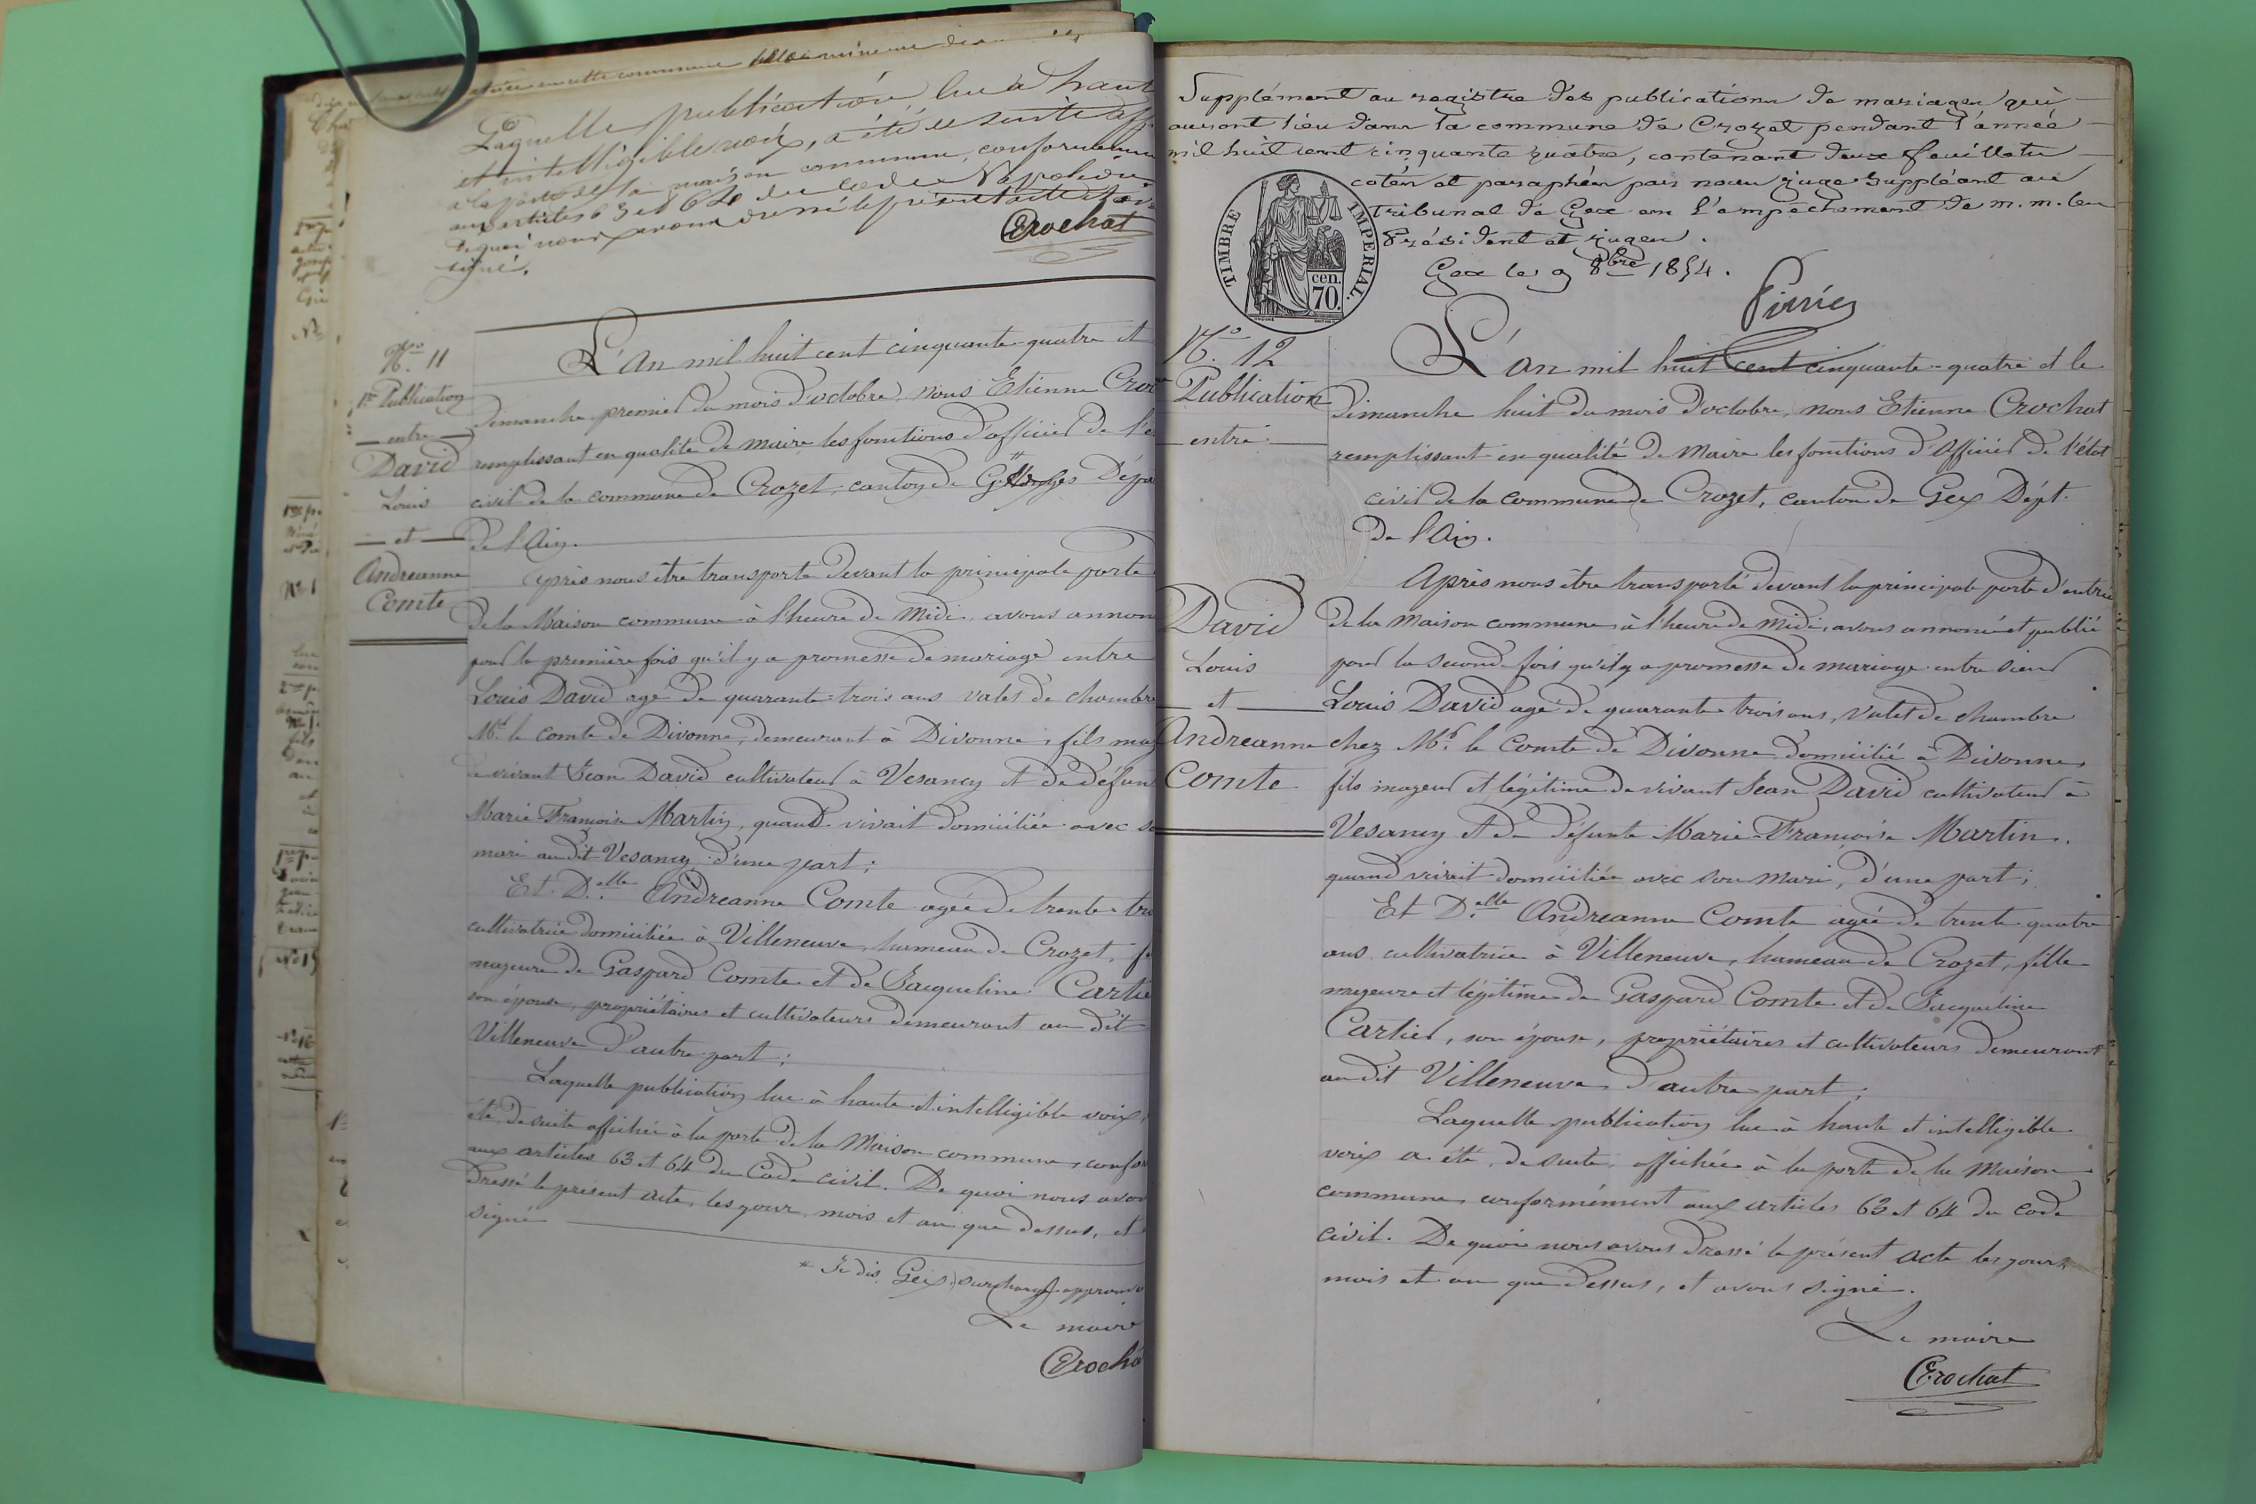 Laquelle publication lue à haut
et intelligible voix, a été de suite aff
à la porte de la maison commune, conformemen
aux articles 63 et 64 du Code Napoléon
De quoi nous avons dressé le présent acte et avons
signé.
Crochat
N.o 11
1re Publication
entre
David
Louis
et
Andreanne
Comte
L'An mil huit cent cinquante-quatre et
dimanche premier du mois d'octobre, nous Etienne Croc
remplissant en qualité de maire les fonctions d'officier de l'é
civil de la commune de Crozet, canton de Dépa
de l'Ain.
Après nous être transporté devant la principale porte
de la Maison commune à l'heure de Midi, avons annon
pour la première fois qu'il y a promesse de mariage entre
Louis David agé de quarante-trois ans valet de chambre
Mr. le comte de Divonne, demeurant à Divonne, fils maj
de vivant Jean David cultivateur à Vesancy et de défun
Marie Françoise Martin, quand vivait domiciliée avec so
mari au dit Vesancy d'une part;
Et D.elle Andreanne Comte agée de trente-tro
cultivatrice domiciliée à Villeneuve, hameau de Crozet, fi
majeure de Gaspard Comte et de Jacqueline Cartie
son épouse, propriétaires et cultivateurs demeurant au dit
Villeneuve d'autre part;
Laquelle publication lue à haute et intelligible voix,
été de suite affichée à la porte de la Maison commune, confor
aux articles 63 et 64 du Code civil. De quoi nous avon
dressé le présent acte, les jour, mois et an que dessus, et
signé
* Je dis Gex, surcharge approuvé
Le maire
Crocha
Supplément au registre des publications de mariages qui
auront lieu dans la commune de Crozet pendant l'année
mil huit cent cinquante quatre, contenant deux feuillets
cotés et paraphés par nous juge suppléant au
tribunal de Gex en l'empêchement de m.m. les
Président et juges.
Gex le 9 8bre 1854.
TIMBRE IMPERIAL.
cen.
70.
N.o 12
Publication
entre
David
Louis
et
Andreanne
Comte
L'an mil huit cent cinquante-quatre et le
dimanche huit du mois d'octobre, nous Etienne Crochat
remplissant en qualité de Maire les fonctions d'Officier de l'état
civil de la commune de Crozet, canton de Gex Dépt.
de l'Ain.
Après nous être transporté devant la principale porte d'entrée
de la Maison commune à l'heure de Midi, avons annoncé et publié
pour la seconde fois qu'il y a promesse de mariage entre sieur
Louis David agé de quarante trois ans, valet de chambre
chez Mr. le Comte de Divonne domicilié à Divonne,
fils majeur et légitime de vivant Jean David cultivateur à
Vesancy et de défunte Marie-Françoise Martin,
quand vivait domiciliée avec son mari, d'une part;
Et D.elle Andreanne Comte agée de trente-quatre
ans cultivatrice à Villeneuve, hameau de Crozet, fille
majeure et légitime de Gaspard Comte et de Jacqueline
Cartier, son épouse, propriétaires et cultivateurs demeurant
au dit Villeneuve d'autre part;
Laquelle publication lue à haute et intelligible
voix a été, de suite, affichée à la porte de la Maison
commune, conformément aux articles 63 et 64 du code
civil. De quoi nous avons dressé le présent acte les jour,
mois et an que dessus, et avons signé.
Le maire
Crochat